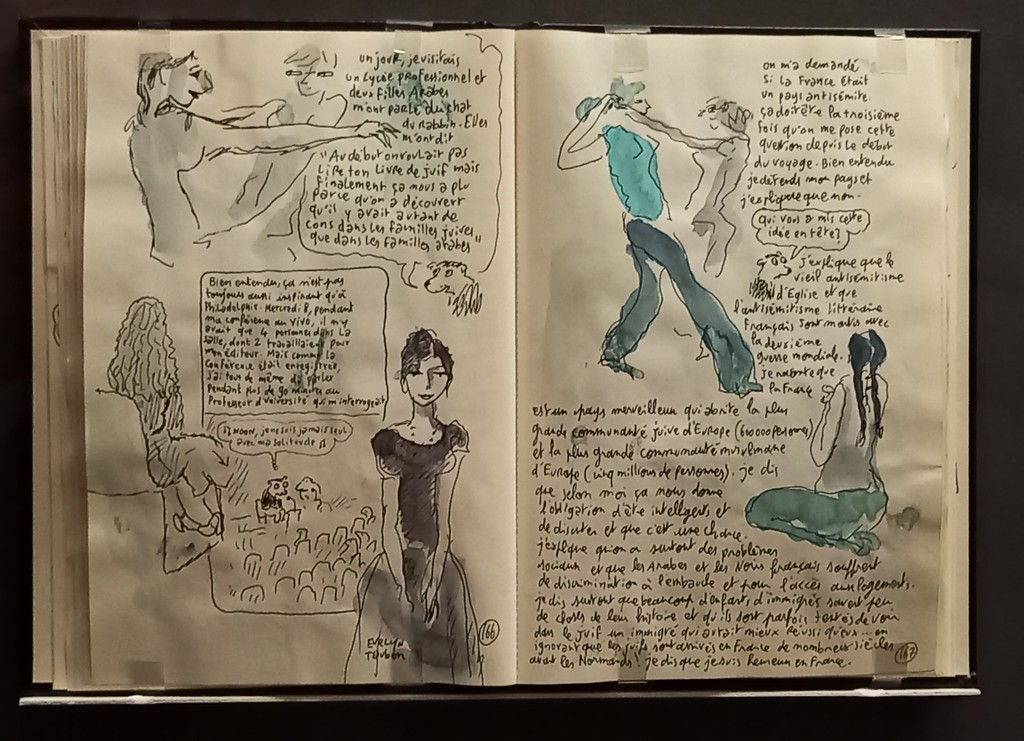 un jour, je visitais
un lycée professionnel et
deux filles Arabes
m'ont parlé du chat
du Rabbin. Elles
m'ont dit
"Au début on voulait pas
lire ton livre de juif mais
finalement ça nous a plu
parce qu'on a découvert
qu'il y avait autant de
cons dans les familles juives
que dans les familles arabes"
Bien entendu, ça n'est pas
toujours aussi inspirant qu'à
Philadelphie. Mercredi 8, pendant
ma conférence au Vivo, il n'y
avait que 4 personnes dans la
salle, dont 2 travaillaient pour
mon éditeur. Mais comme la
conférence était enregistrée,
j'ai tout de même dû parler
pendant plus de 90 minutes au
Professeur d'Université qui m'interrogeait
♫ NOON, je ne suis jamais seul
avec ma solitude ♫
EVELYN
166
on m'a demandé
si la France était
un pays antisémite.
ça doit être la troisième
fois qu'on me pose cette
question depuis le début
du voyage. Bien entendu
je défends mon pays et
j'explique que non.
Qui vous a mis cette
idée en tête?
j'explique que le
vieil antisémitisme
d'Eglise et que
l'antisémitisme littéraire
Français sont morts avec
la deuxième
guerre mondiale.
je raconte que
la France
est un pays merveilleux qui abrite la plus
grande communauté juive d'Europe (600000 personnes)
et la plus grande communauté musulmane
d'Europe (cinq millions de personnes). je dis
que selon moi ça nous donne
l'obligation d'être intelligents et
de discuter et que c'est une chance.
j'explique qu'on a surtout des problèmes
sociaux et que les Arabes et les Noirs français souffrent
de discrimination à l'embauche et pour l'accès aux logements.
je dis surtout que beaucoup d'enfants d'immigrés savent peu
de choses de leur histoire et qu'ils sont parfois tentés de voir
dans le juif un immigré qui aurait mieux réussi qu'eux... en
ignorant que les juifs sont arrivés en France de nombreux siècles
avant les Normands! je dis que je suis heureux en France.
167